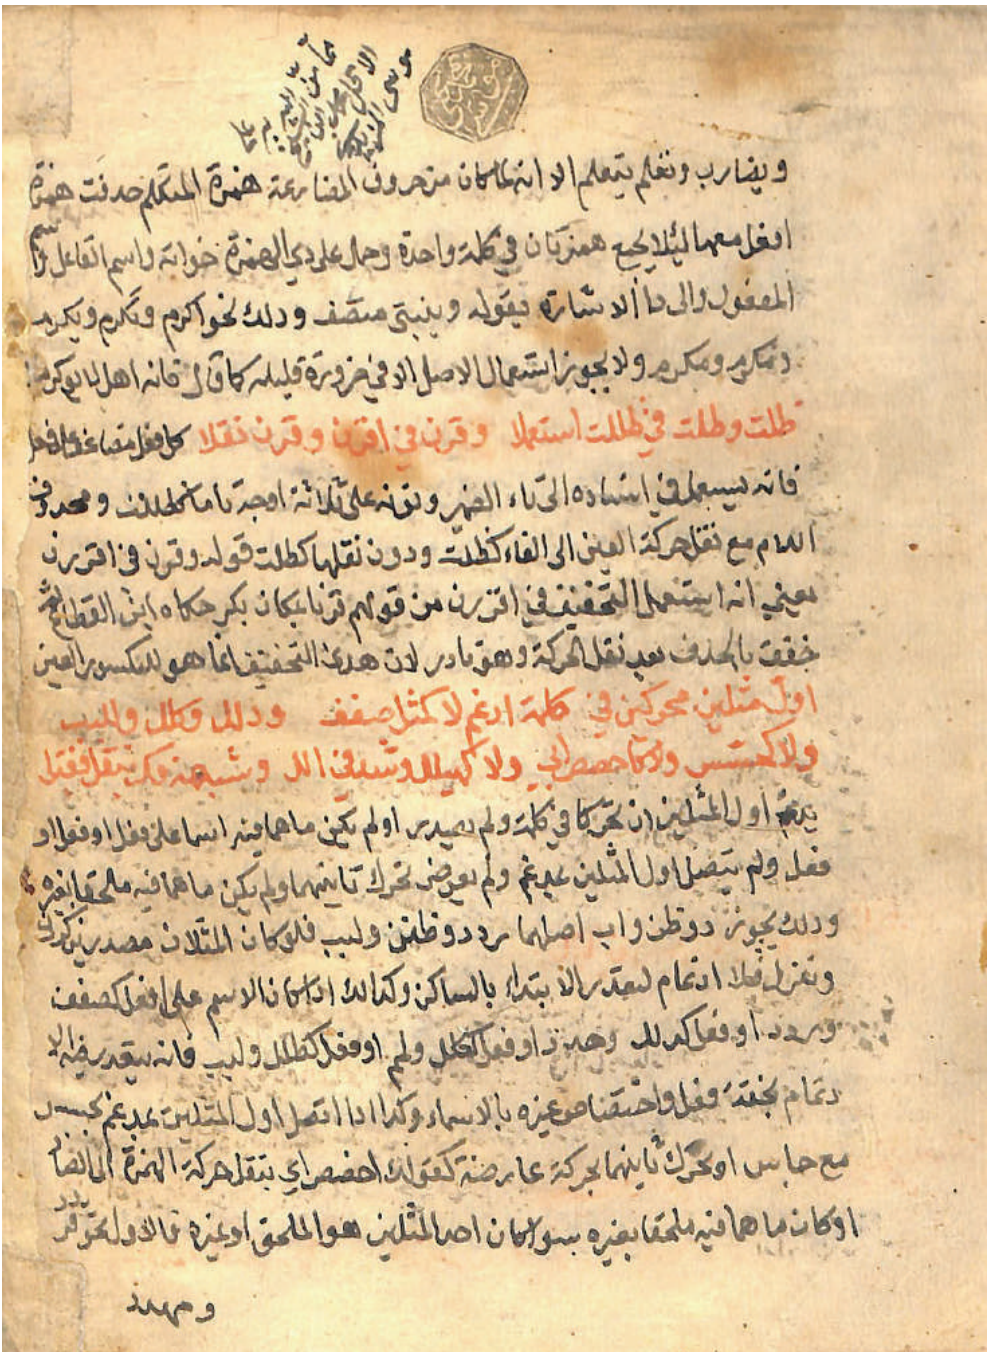 ويضارب وتعلم يتعلم الا انه لما كان من حروف المضارعة همزة المتكلم حذفت همزة
افعل معها ليلا يجمع همزتان في كلمة واحدة وحمل على ذي الهمزة اخواته واسم الفاعل واسم
المفعول والى هذا الاشارة بقوله وبنيتي متصف وذلك نحو اكرم ونكرم ويكرم
ومكرم ولا يجوز استعمال الاصل الا في ضرورة قليله كما قال فانه اهل لان يوكرما
ظلت وظلت في ظللت استعملا وقرن في اقررن وقرن نقلا كل فعل مضاعف على فعل
فانه يستعمل في اسناده الى تاء الضمير ونونه على ثلاثة اوجه تاما كظللت ومحذوف
اللام مع نقل حركة العين الى الفاء كظلت ودون نقلها كظلت قوله وقرن في اقررن
يعني انه استعمل التخفيف في اقررن من قولهم قر بالمكان يقر حكاه ابن القطاع ثم
خففت بالحذف بعد نقل الحركة وهو نادر لان هذا التخفيف انما هو للمكسور العين
اول مثلين محركين في كلمة ادغم لا كمثل صفف وذلل وكلل ولبب
ولا كجسس ولا كاخصص ابي ولا كهيلل وشذ في الل وشبهه فك بنقل فقبل
يدغم اول المثلين ان تحركا في كلمة ولم يصدرا ولم يكن ما هما فيه اسما على فعل او فعل او
فعل ولم يتصل اول المثلين بمدغم ولم يعرض تحرك ثانيهما ولم يكن ما هما فيه ملحقا بغيره
وذلك نحو رد وظن ولب اصلهما ردد وظنن ولبب فلو كان المثلان مصدرين
فلا ادغام لتعذر الابتداء بالساكن وكذلك اذا كان الاسم على افعل كصفف
ودرر او فعل كذلل وجدد او فعل ككلل ولمم او فعل كطلل ولبب فانه يتعذر فيه الا
دغام لخفة فعل واختصاص غيره بالاسماء وكذا اذا اتصل اول المثلين بمدغم كجسس
مع جاس او تحرك ثانيهما بحركة عارضة كقولك اخصص ابي بنقل حركة الهمزة الى الصاد
او كان ما هما فيه ملحقا بغيره سوا كان احد المثلين هو الملحق او غيره فالاول نحو قردد
ومهدد